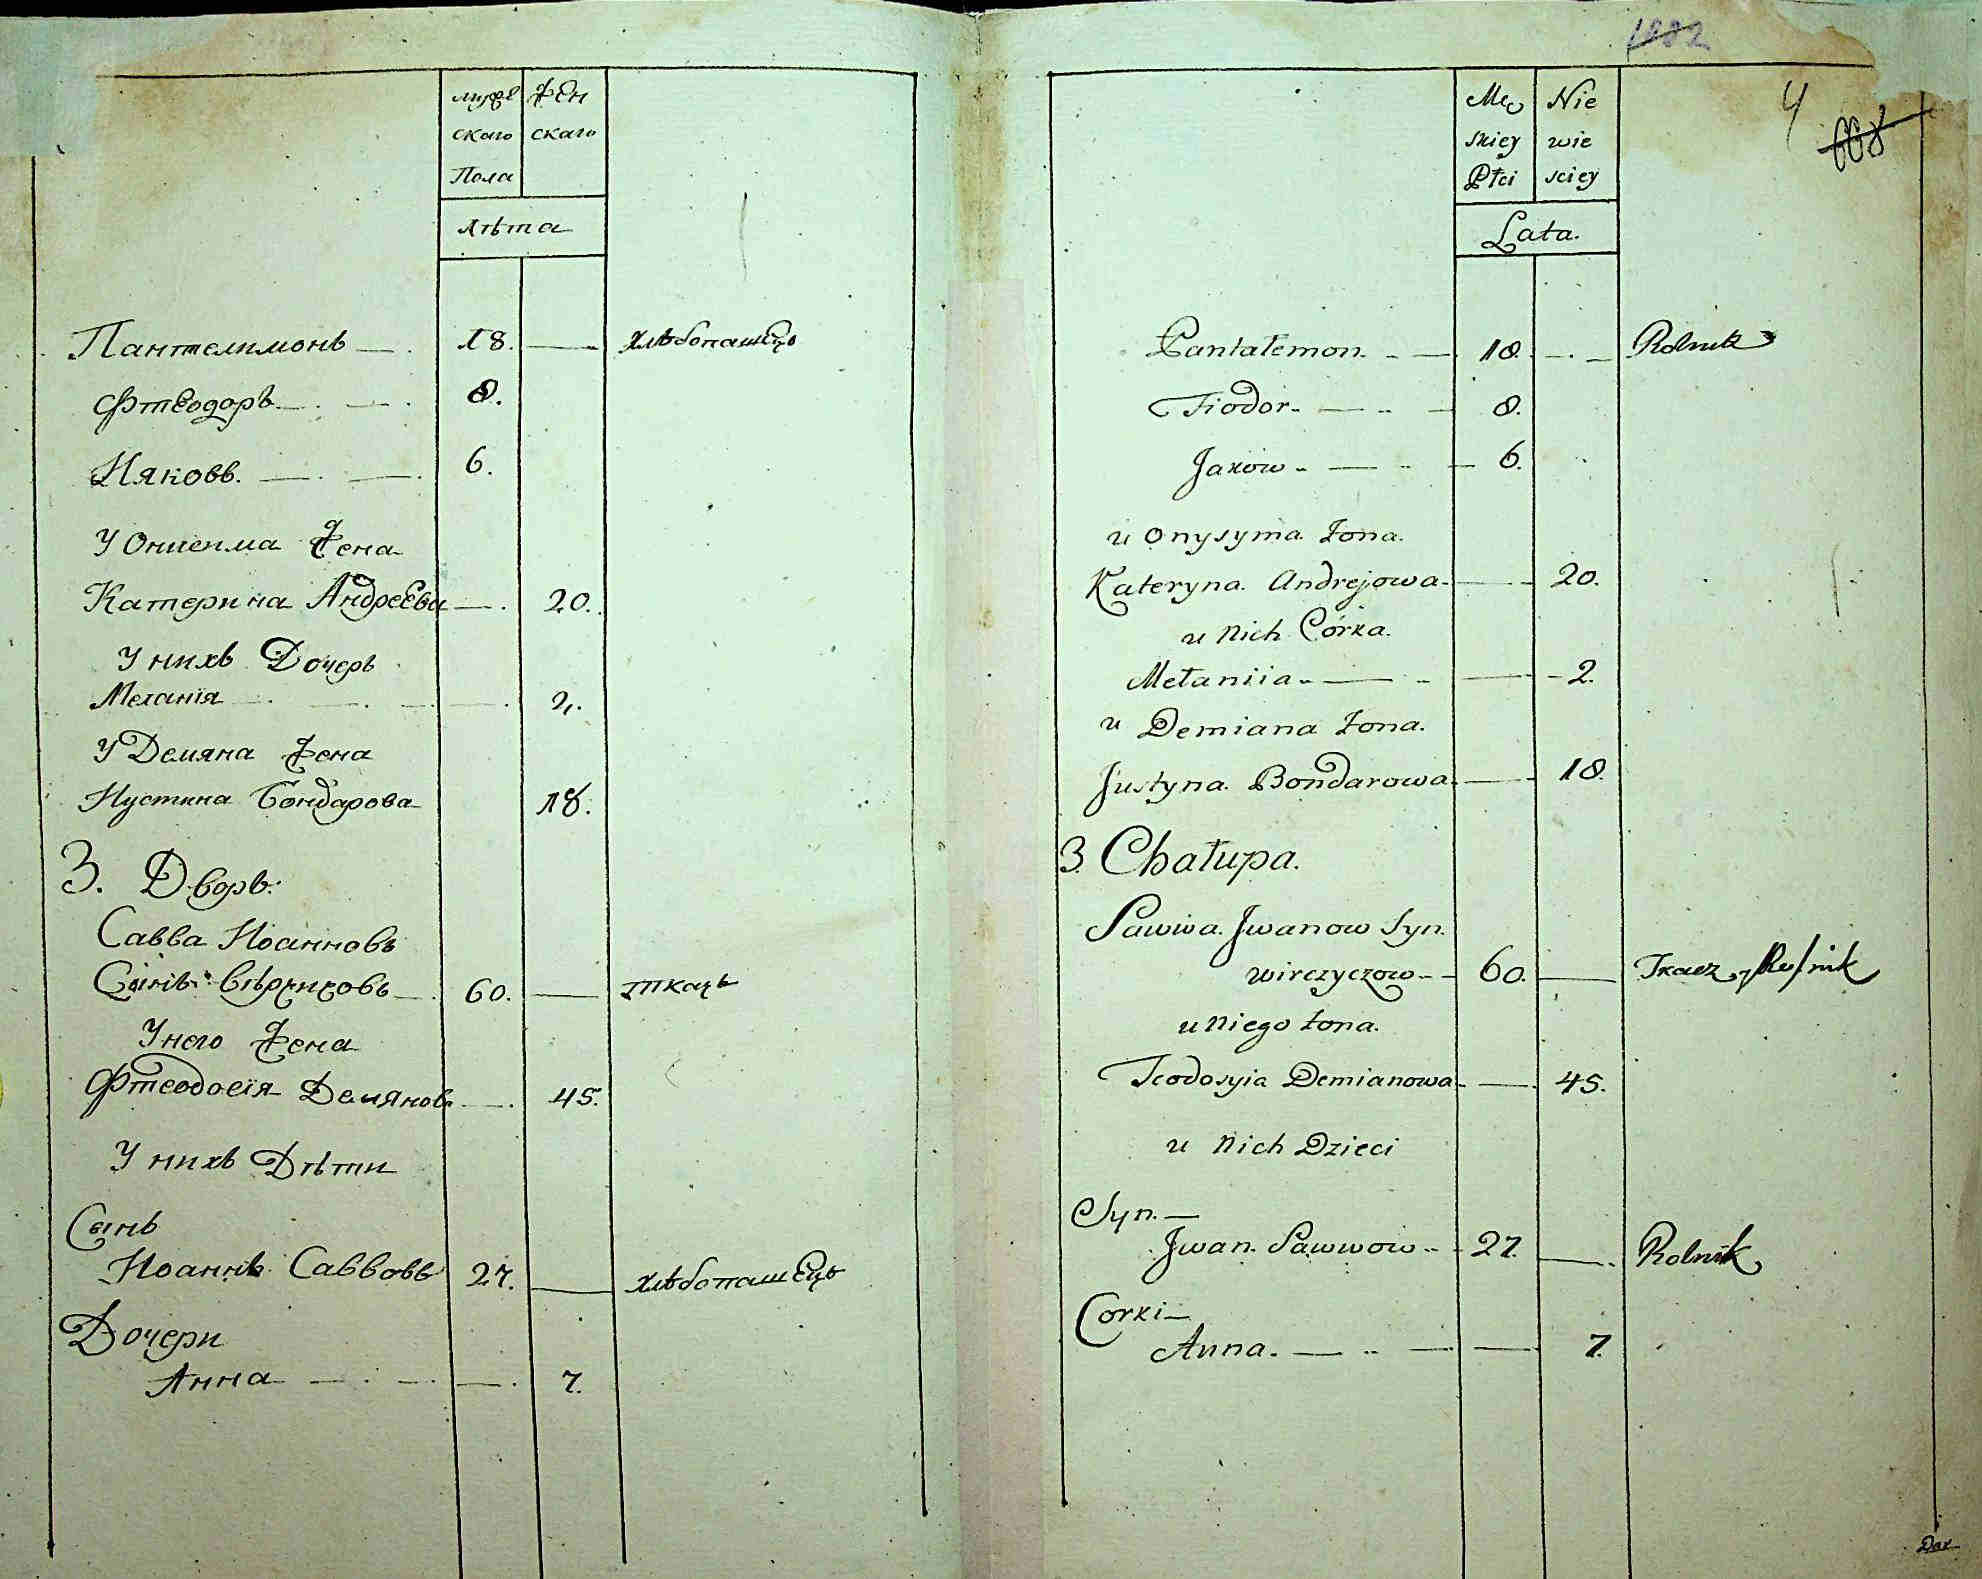 мужескаго Пола
Женскаго
лѣта
Пантелимонъ 18. хлѣбопашецъ
Фтеодоръ 8.
Ияковъ. 6.
У Онисима Жена
Катерина Андреева 20.
У нихъ Дочерь
Меланія 2.
У Демяна Жена
Иустина Бондарова 18.
3. Дворъ.
Савва Иоанновъ
Сынъ 60. ткачъ
У него Жена
Фтеодосія Демянова 45.
У нихъ Дѣти
Сынъ
Иоаннъ Саввовъ 27. хлѣбопашецъ
Дочери
Анна 7.
1882
4
668
Męskiey Płci
Niewiesciey
Lata.
Pantałemon. 18. Rolnik
Fiodor 8.
Jakow 6.
u Onysyma Żona.
Kateryna. Andrejowa 20.
u Nich Córka.
Mełaniia 2.
u Demiana Żona.
Justyna. Bondarowa. 18.
3 Chałupa.
Sawwa. Jwanow Syn.
wirczyczow 60. Tkacz y Rolnik
u Niego żona.
Teodosyia Demianowa 45.
u Nich Dzieci
Syn.
Jwan. Sawwow 27. Rolnik
Corki
Anna. 7.